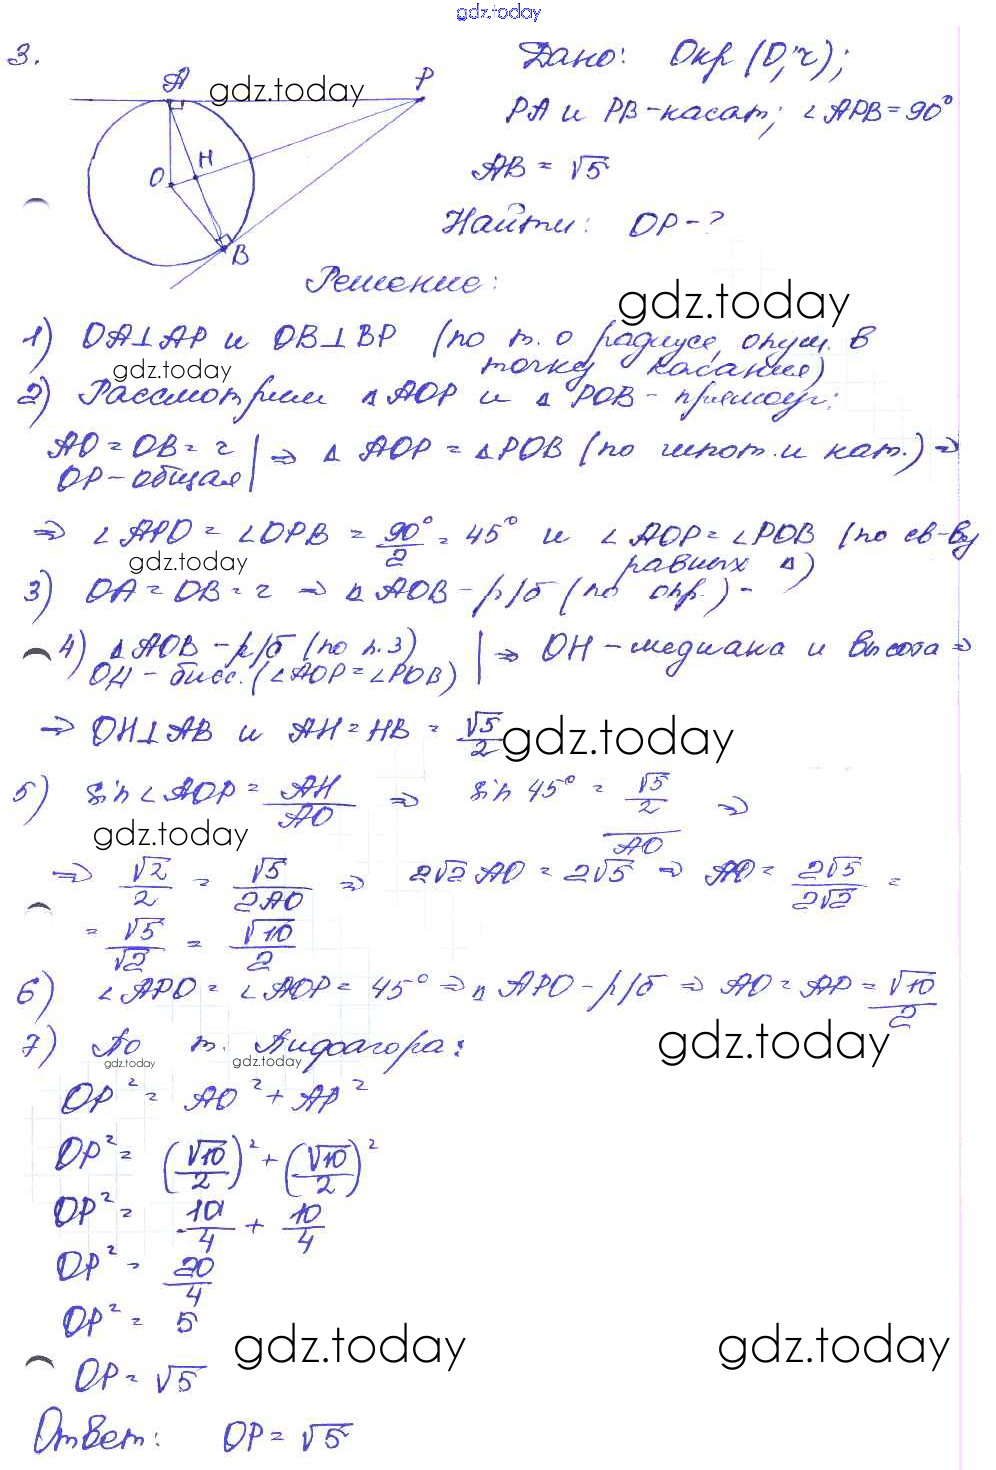 gdz.today
3.
Дано: Окр (O; r);
A gdz.today P
PA и PB - касат; ∠APB = 90°
AB = √5
O H
Найти: OP - ?
B
Решение:
gdz.today
1) OA⊥AP и OB⊥BP (по т. о радиусе, опущ. в
точку касания)
gdz.today
2) Рассмотрим △AOP и △POB - прямоуг:
AO = OB = r | ⇒ △AOP = △POB (по гипот. и кат.) ⇒
OP - общая
⇒ ∠APO = ∠OPB = 90°/2 = 45° и ∠AOP = ∠POB (по св-ву
равных △)
gdz.today
3) OA = OB = r ⇒ △AOB - р/б (по опр.) -
4) △AOB - р/б (по п.3) | ⇒ OH - медиана и высота ⇒
OH - бисс. (∠AOP = ∠POB)
⇒ OH⊥AB и AH = HB = √5/2
gdz.today
5) sin∠AOP = AH/AO ⇒ sin 45° = (√5/2)/AO ⇒
gdz.today
⇒ √2/2 = √5/2AO ⇒ 2√2 AO = 2√5 ⇒ AO = 2√5/2√2 =
= √5/√2 = √10/2
6) ∠APO = ∠AOP = 45° ⇒ △APO - р/б ⇒ AO = AP = √10/2
gdz.today
7) По т. Пифагора:
gdz.today gdz.today
OP² = AO² + AP²
OP² = (√10/2)² + (√10/2)²
OP² = 10/4 + 10/4
OP² = 20/4
OP² = 5
gdz.today gdz.today
OP = √5
Ответ: OP = √5